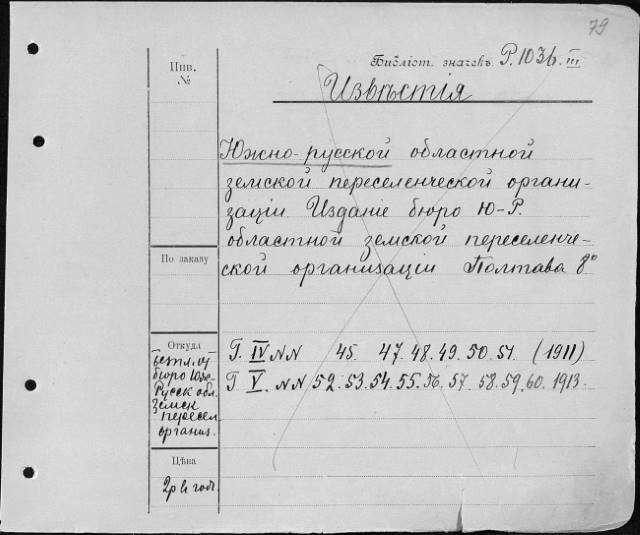 79
Инв. №
Библіот. значекъ Р. 103b. III
Извѣстія
Южно-русской областной
земской переселенческой органи-
заціи. Изданіе бюро Ю-Р.
областной земской переселенче-
ской организаціи Полтава 8º
По заказу
Откуда
бюро Юж-
Русск обл.
Земск
пересел
организ.
Г. IV NN 45. 47. 48. 49. 50. 51. (1911)
Г V. NN 52. 53. 54. 55. 56. 57. 58. 59. 60. 1913.
Цѣна
2р в год.